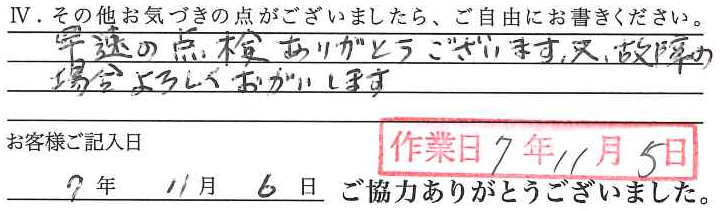 Ⅳ．その他お気づきの点がございましたら、ご自由にお書きください。
早速の点検ありがとうございます、又、故障の
場合よろしくおがいします
お客様ご記入日
作業日7年11月5日
7年11月6日 ご協力ありがとうございました。